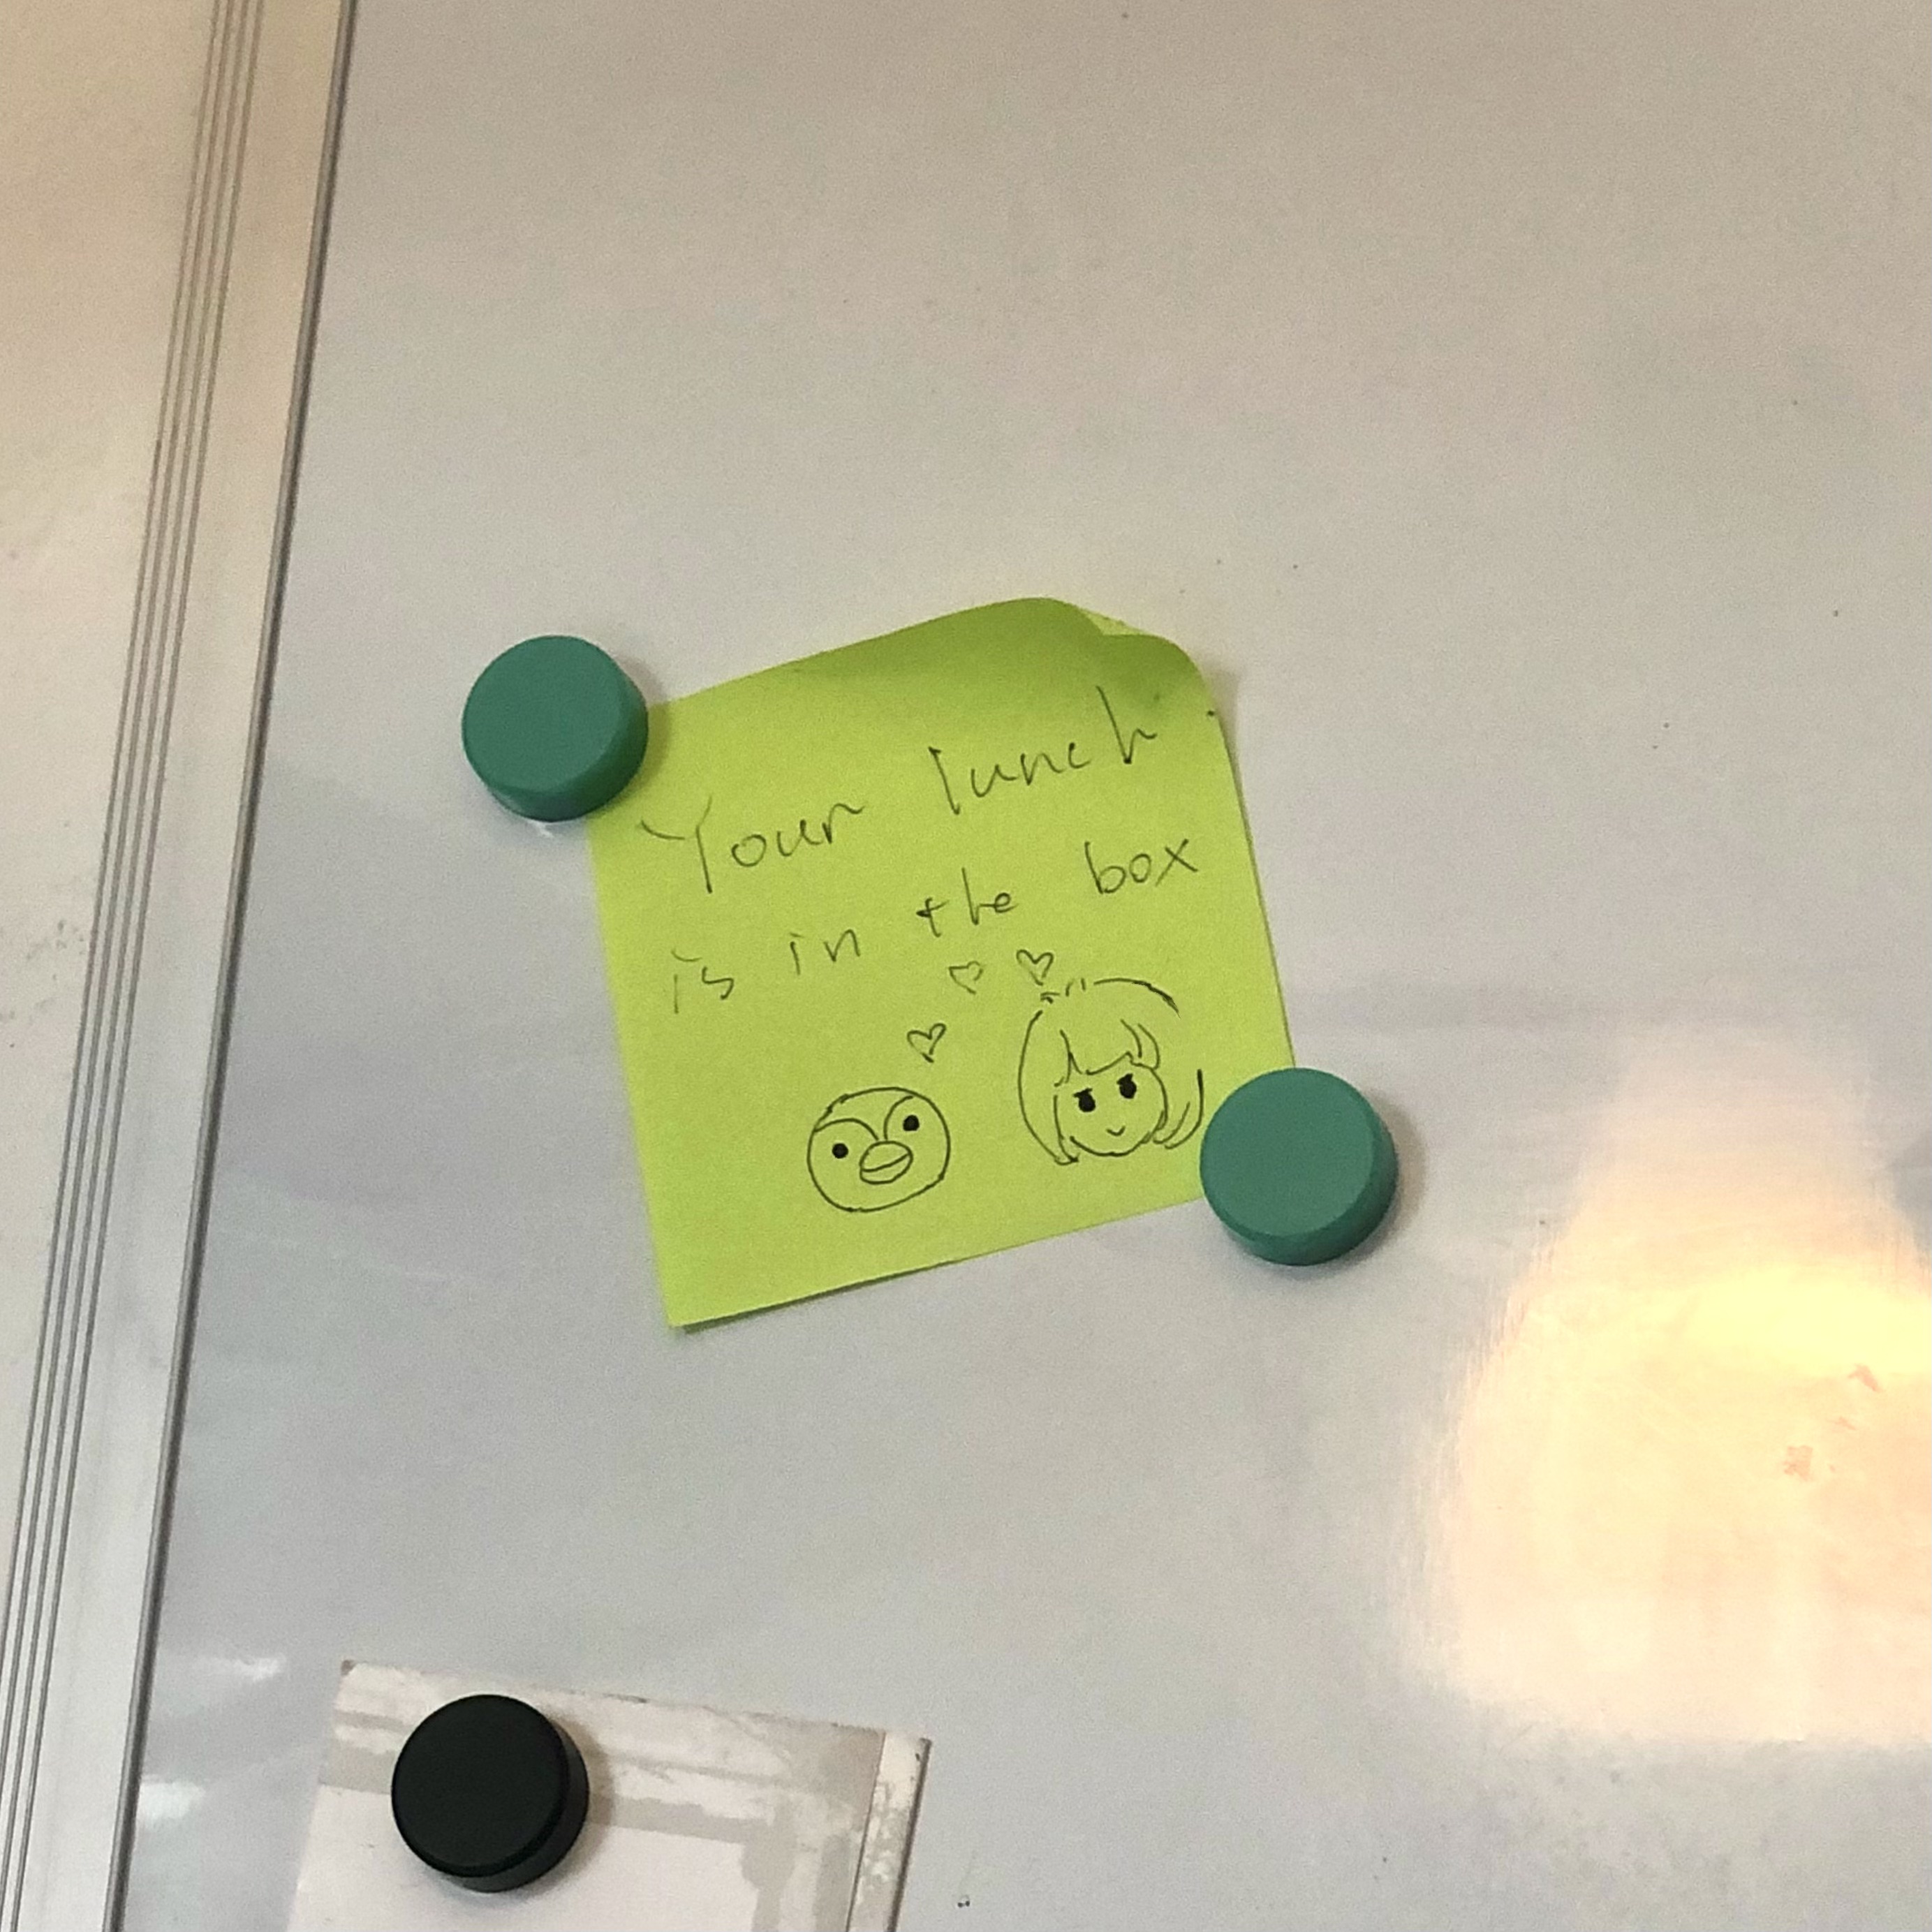 Your lunch
is in the box